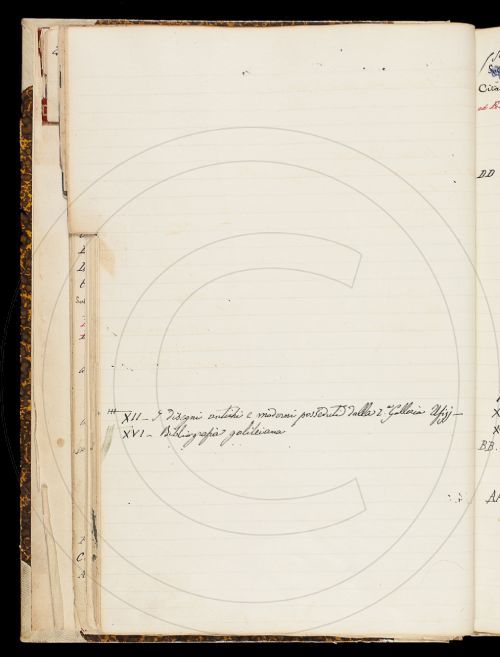 XII - I disegni antichi e moderni posseduti dalla R.ª Galleria Uffizj -
XVI - Bibliografia galileiana
Cita
DD
BB.